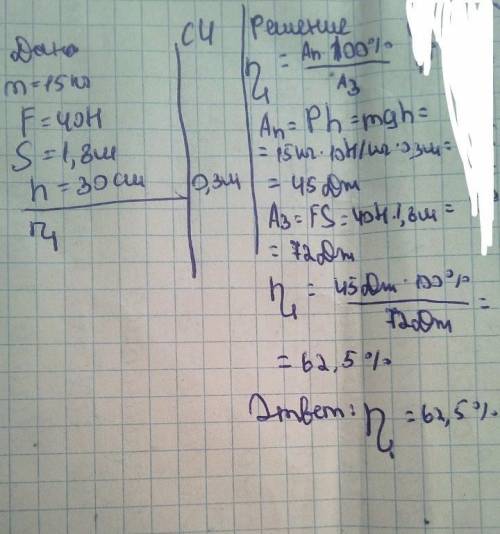 Дано
m = 15 кг
F = 40Н
S = 1,8м
h = 30 см
η
СИ
0,3м
Решение
η = Aп 100% / Aз
Aп = Ph = mgh =
= 15кг · 10Н/кг · 0,3м =
= 45Дж
Aз = FS = 40Н · 1,8м =
= 72Дж
η = 45Дж · 100% / 72Дж =
= 62,5%
Ответ: η = 62,5%